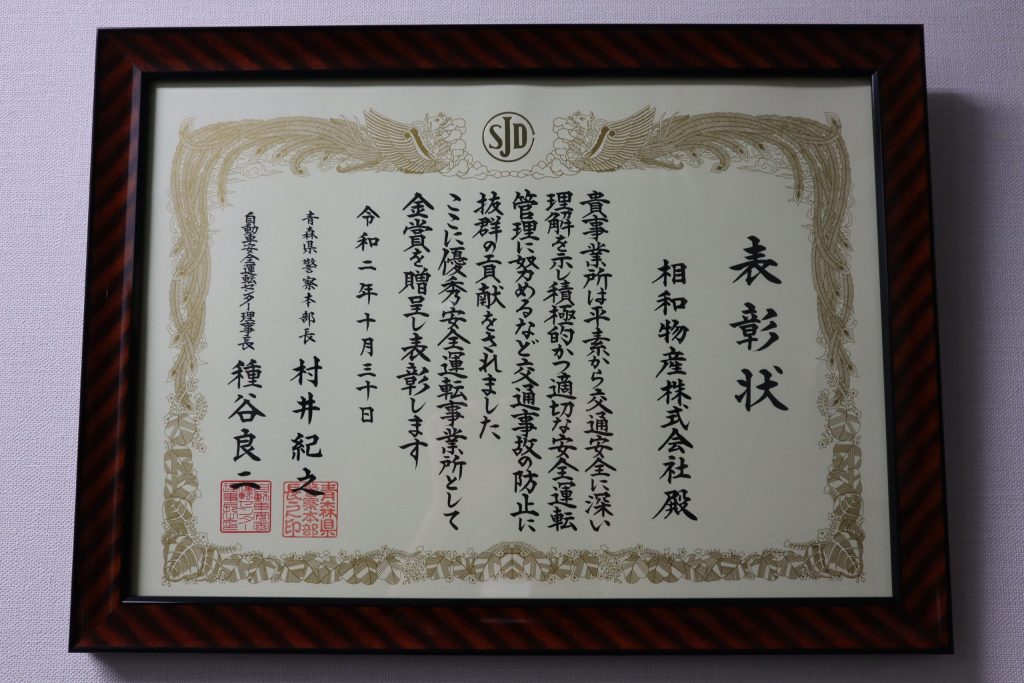 SJD
表彰状
相和物産株式会社 殿
貴事業所は平素から交通安全に深い
理解を示し積極的かつ適切な安全運転
管理に努めるなど交通事故の防止に
抜群の貢献をされました
ここに優秀安全運転事業所として
金賞を贈呈し表彰します
令和二年十月三十日
青森県警察本部長 村井紀之
青森県
警察本部
長之印
自動車安全運転センター理事長 種谷良二